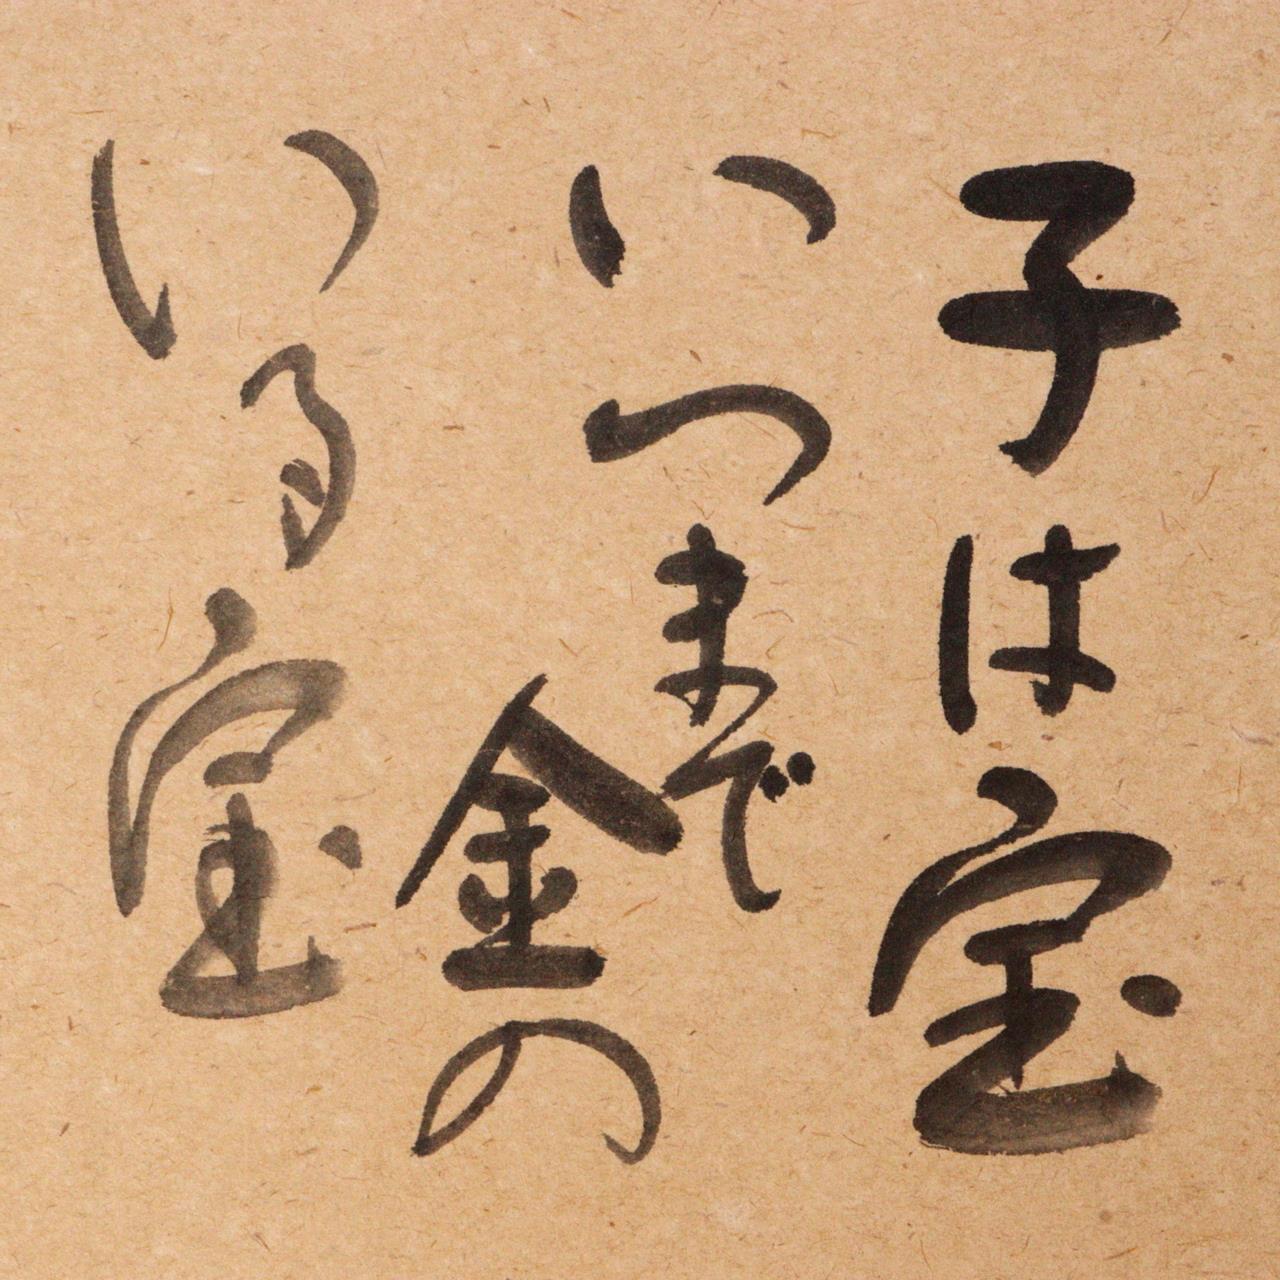 子は宝
いつまで
金の
いる宝